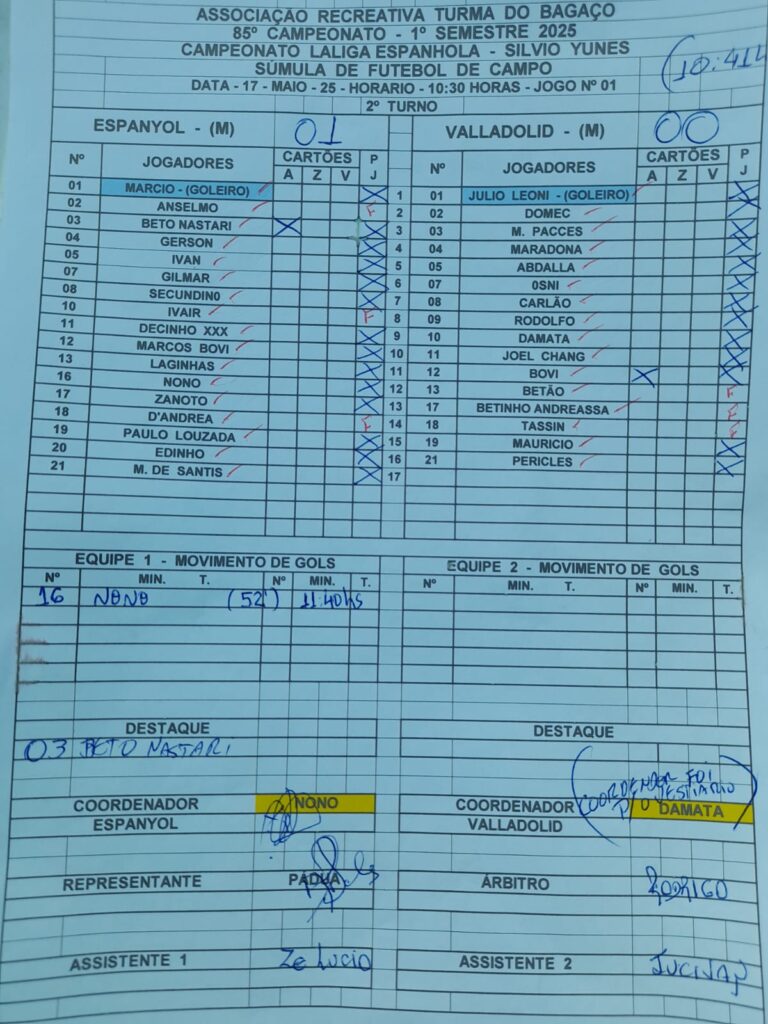 ASSOCIAÇÃO RECREATIVA TURMA DO BAGAÇO
85º CAMPEONATO - 1º SEMESTRE 2025
CAMPEONATO LALIGA ESPANHOLA - SILVIO YUNES
SÚMULA DE FUTEBOL DE CAMPO
DATA - 17 - MAIO - 25 - HORARIO - 10:30 HORAS - JOGO Nº 01
2º TURNO
ESPANYOL - (M) 01 VALLADOLID - (M) 00
Nº JOGADORES CARTÕES P Nº JOGADORES CARTÕES P
A Z V J A Z V J
01 MARCIO - (GOLEIRO) X 1 01 JULIO LEONI - (GOLEIRO) X
02 ANSELMO F 2 02 DOMEC X
03 BETO NASTARI X X 3 03 M. PACCES X
04 GERSON X 4 04 MARADONA X
05 IVAN X 5 05 ABDALLA X
07 GILMAR X 6 07 0SNI X
08 SECUNDIN0 X 7 08 CARLÃO X
10 IVAIR F 8 09 RODOLFO X
11 DECINHO XXX X 9 10 DAMATA X
12 MARCOS BOVI X 10 11 JOEL CHANG X
13 LAGINHAS X 11 12 BOVI X X
16 NONO X 12 13 BETÃO F
17 ZANOTO X 13 17 BETINHO ANDREASSA F
18 D'ANDREA F 14 18 TASSIN F
19 PAULO LOUZADA X 15 19 MAURICIO X
20 EDINHO X 16 21 PERICLES X
21 M. DE SANTIS X 17
EQUIPE 1 - MOVIMENTO DE GOLS EQUIPE 2 - MOVIMENTO DE GOLS
Nº MIN. T. Nº MIN. T. Nº MIN. T. Nº MIN. T.
16 NONO (52') 11:40hs
DESTAQUE DESTAQUE
03 BETO NASTARI
COORDENADOR FOI
COORDENADOR NONO COORDENADOR DAMATA
ESPANYOL VALLADOLID
REPRESENTANTE PÁDUA ÁRBITRO RODRIGO
ASSISTENTE 1 Ze Lucio ASSISTENTE 2